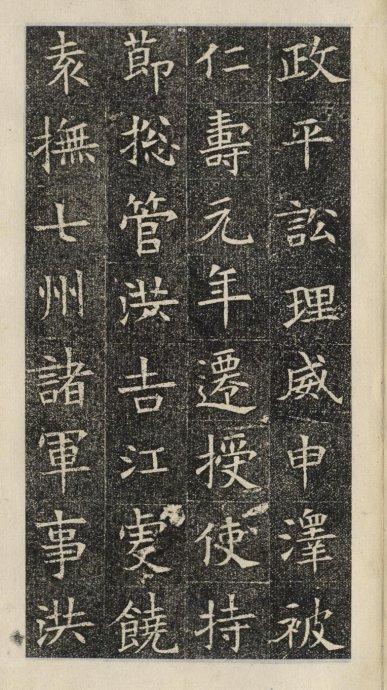 政平訟理威申澤被
仁壽元年遷授使持
節捴管洪吉江虔饒
袁撫七州諸軍事洪